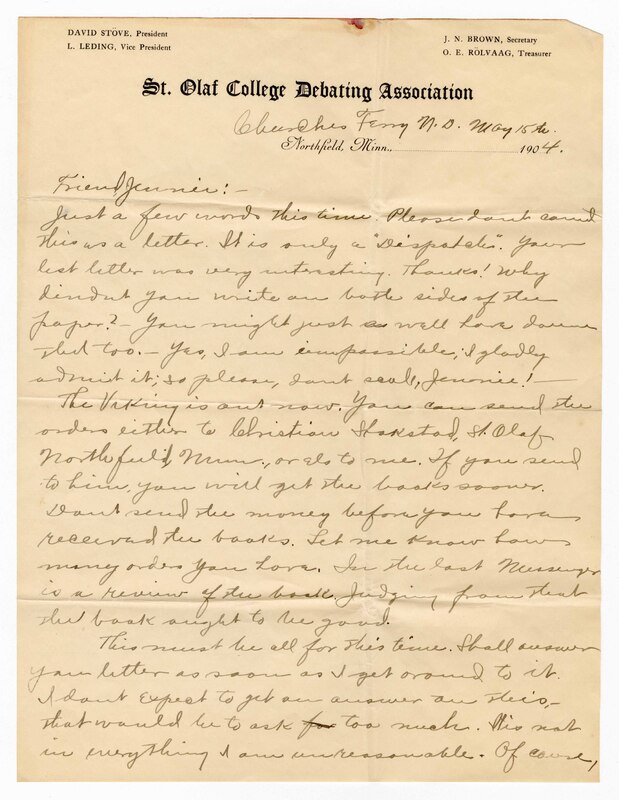 DAVID STÖVE, President
L. LEDING, Vice President
J. N. BROWN, Secretary
O. E. ROLVAAG, Treasurer
St. Olaf College Debating Association
Churches Ferry N. D. May 15th
Northfield, Minn., 1904.
Friend Jennie:—
Just a few words this time. Please dont count
this as a letter. It is only a "Dispatch". Your
last letter was very interesting. Thanks! Why
dindut you write on both sides of the
paper?— You might just as well have done
that too.— Yes, I am impossible; I gladly
admit it; so please, dont scold, Jennie!—
The Viking is out now. You can send the
orders either to Christian St. Olaf
Northfield, Minn., or els to me. If you send
to him, you will get the books sooner.
Dont send the money before you have
received the books. Let me know how
many orders you have. In the last Messenger
is a review of the book. Judging from that
the book ought to be good.
This must be all for this time. Shall answer
your letter as soon as I get around to it.
I dont expect to get an answer on this,
that would be to ask too much. It is not
in everything I am unreasonable. Of course,